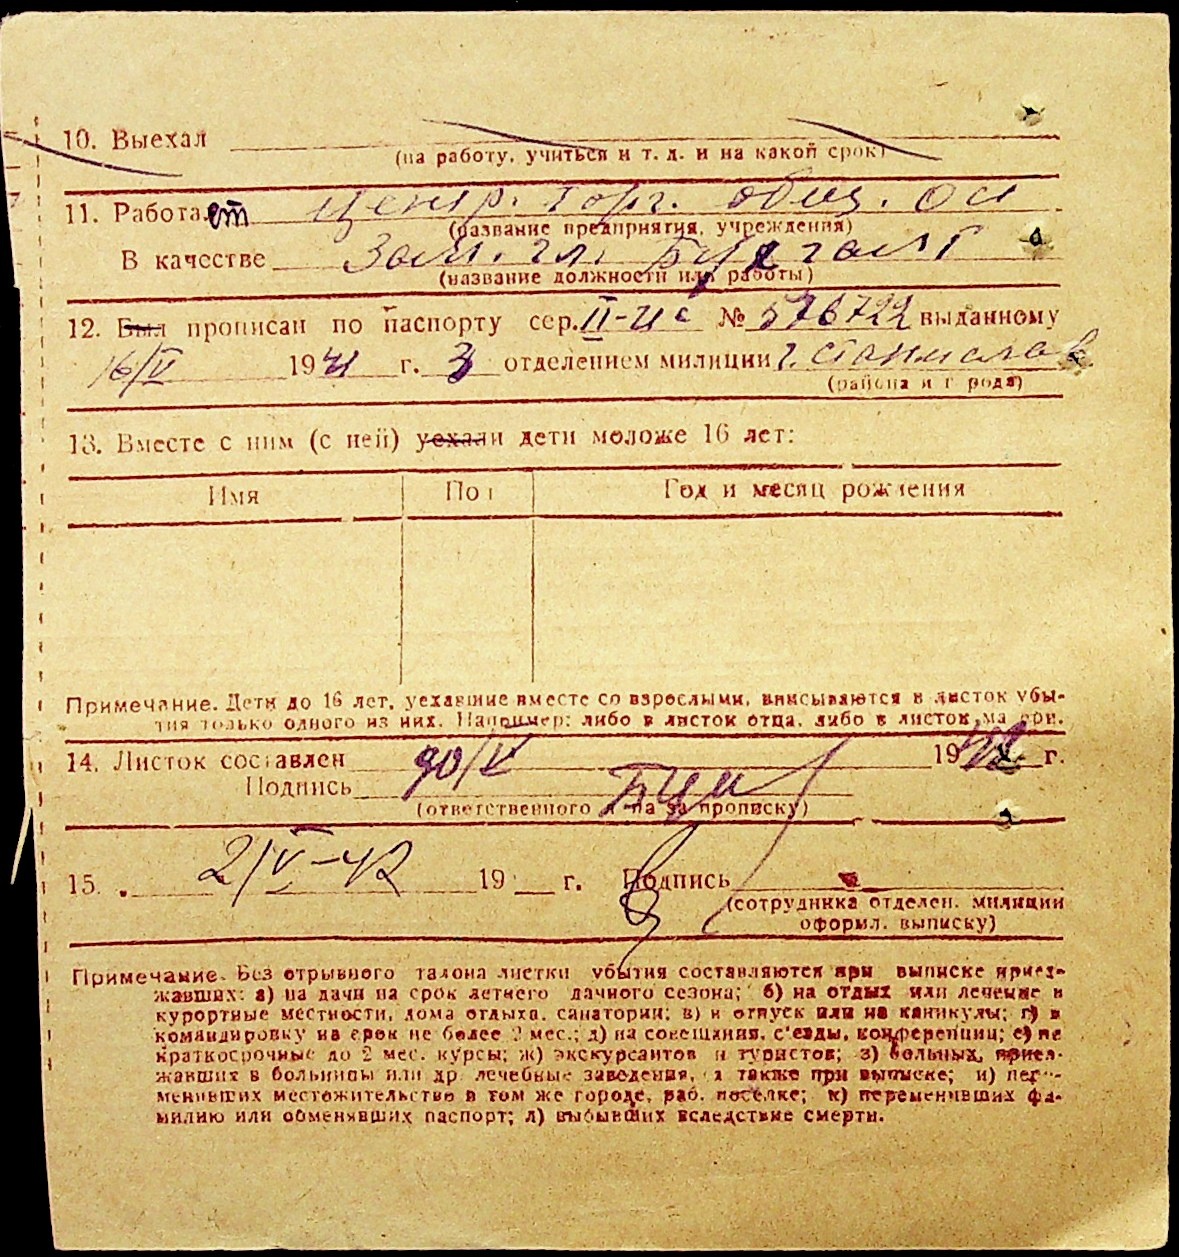 10. Выехал
(на работу, учиться и т. д. и на какой срок)
11. Работает Центр. торг. общ.
(название предприятия, учреждения)
В качестве Зам. гл. Бухгалт
(название должности или работы)
12. Был прописан по паспорту сер. II-ИС № 576722 выданному
16/V 1941 г. 3 отделением милиции г. Станислав
(района и города)
13. Вместе с ним (с ней) уехали дети моложе 16 лет:
Имя Пол Год и месяц рождения
Примечание. Дети до 16 лет, уехавшие вместе со взрослыми, вписываются в листок убы-
тия только одного из них. Например: либо в листок отца, либо в листок матери.
14. Листок составлен 20/V 1942 г.
Подпись
(ответственного л-ца за прописку)
15. 2/V-42 19 г. Подпись
(сотрудника отделен. милиции
оформл. выписку)
Примечание. Без отрывного талона листки убытия составляются при выписке приез-
жавших: а) на дачи на срок летнего дачного сезона; б) на отдых или лечение в
курортные местности, дома отдыха, санатории; в) в отпуск или на каникулы; г) в
командировку на срок не более 2 мес.; д) на совещания, с'езды, конференции; е) не
краткосрочные до 2 мес. курсы; ж) экскурсантов и туристов; з) больных, приез-
жавших в больницы или др. лечебные заведения, а также при выписке; и) пере-
менивших местожительство в том же городе, раб. поселке; к) переменивших фа-
милию или обменявших паспорт; л) выбывших вследствие смерти.